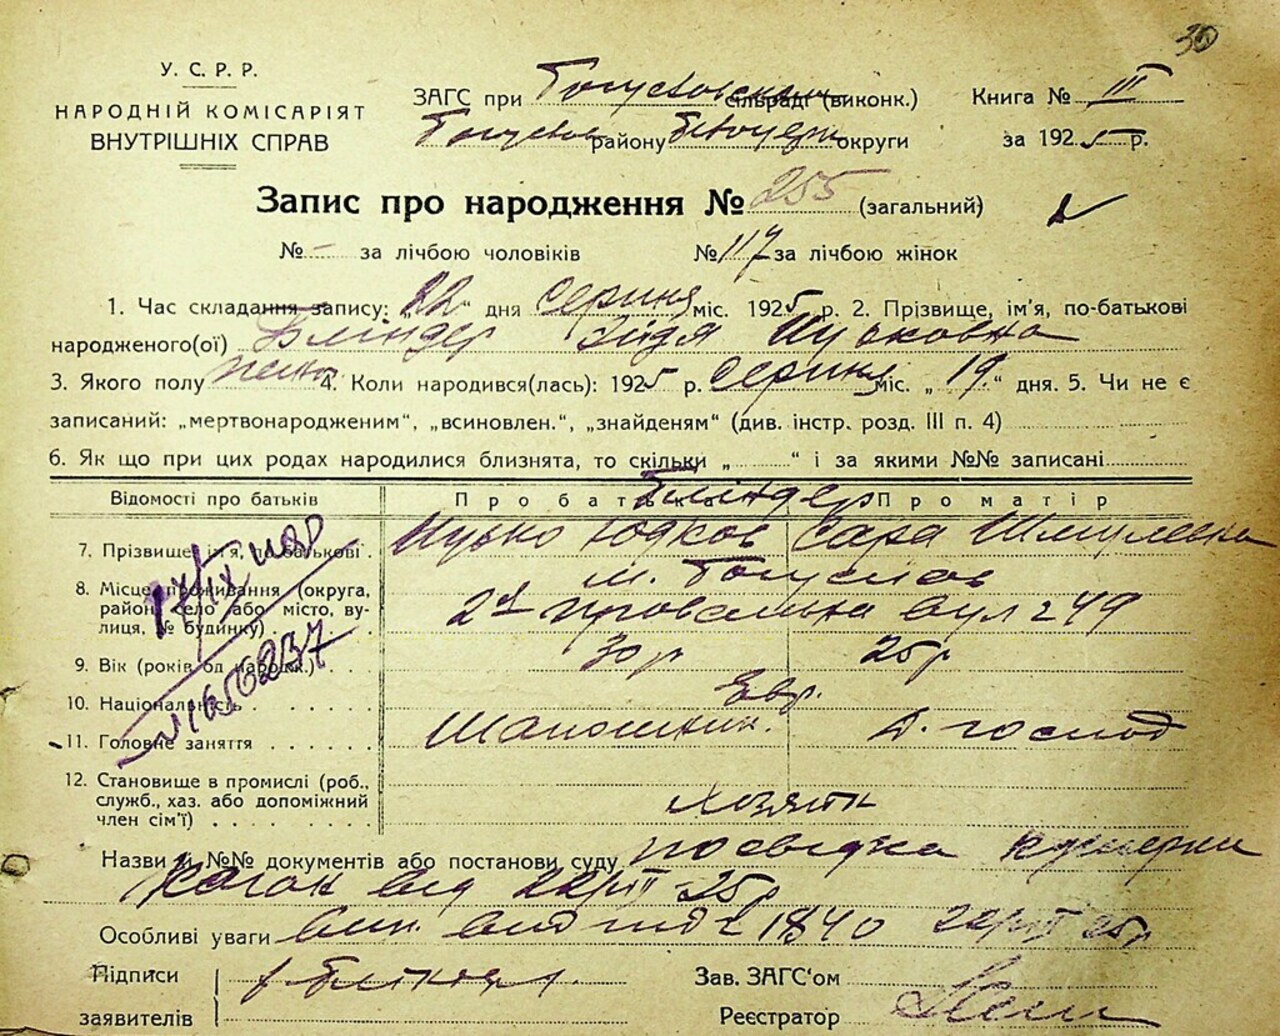 30
У. С. Р. Р.
НАРОДНІЙ КОМІСАРІЯТ
ВНУТРІШНІХ СПРАВ
ЗАГС при Богуславськім сільраді (виконк.)
Книга № III
району округи
за 1925 р.
Запис про народження № 255 (загальний)
№ – за лічбою чоловіків № 117 за лічбою жінок
1. Час складання запису: „22“ дня Серпня міс. 1925 р. 2. Прізвище, ім'я, по-батькові
народженого(ої) Бліндер Зідя Нуськовна
3. Якого полу жін. 4. Коли народився(лась): 1925 р. Серпня міс. „19“ дня. 5. Чи не є
записаний: „мертвонародженим“, „всиновлен.“, „знайденям“ (див. інстр. розд. III п. 4)
6. Як що при цих родах народилися близнята, то скільки „ “ і за якими №№ записані
Відомості про батьків
Про батька Про матір
Бліндер
7. Прізвище, ім'я, по-батькові Нусько Юдков Сара Шмулевна
8. Місце проживання (округа, район, село або місто, вулиця, № будинку)
м. Богуслав
2а вул 49
9. Вік (років од народж.) 30 р 25 р
10. Національність Євр.
11. Головне заняття Шапошник. Д. господ
12. Становище в промислі (роб., служб., хаз. або допоміжний член сім'ї)
Назви й №№ документів або постанови суду посвідка
Коган від 22 25 р
Особливі уваги вип. 1840 25 р
Підписи
заявителів
Зав. ЗАГС'ом
Реєстратор
№ 1656237